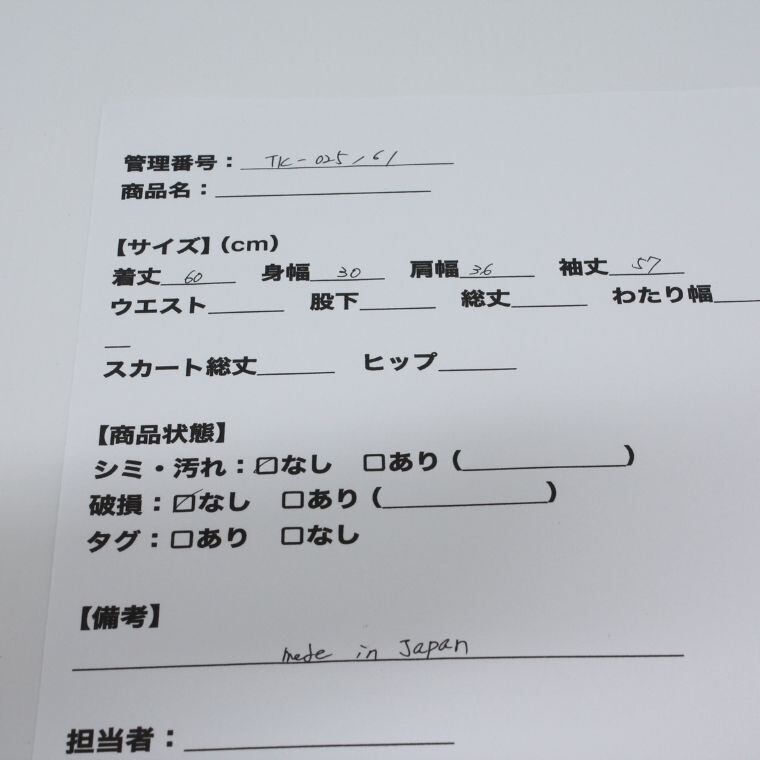 管理番号：TK-025/61
商品名：
【サイズ】(cm)
着丈 60 身幅 30 肩幅 36 袖丈 57
ウエスト 股下 総丈 わたり幅
スカート総丈 ヒップ
【商品状態】
シミ・汚れ：☑なし □あり ( )
破損：☑なし □あり ( )
タグ：□あり □なし
【備考】
made in Japan
担当者：